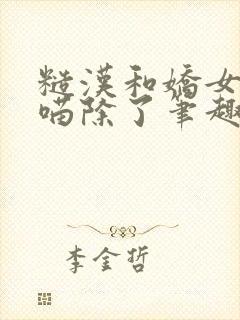 糙漢和嬌女
喵除了筆趣
李金哲